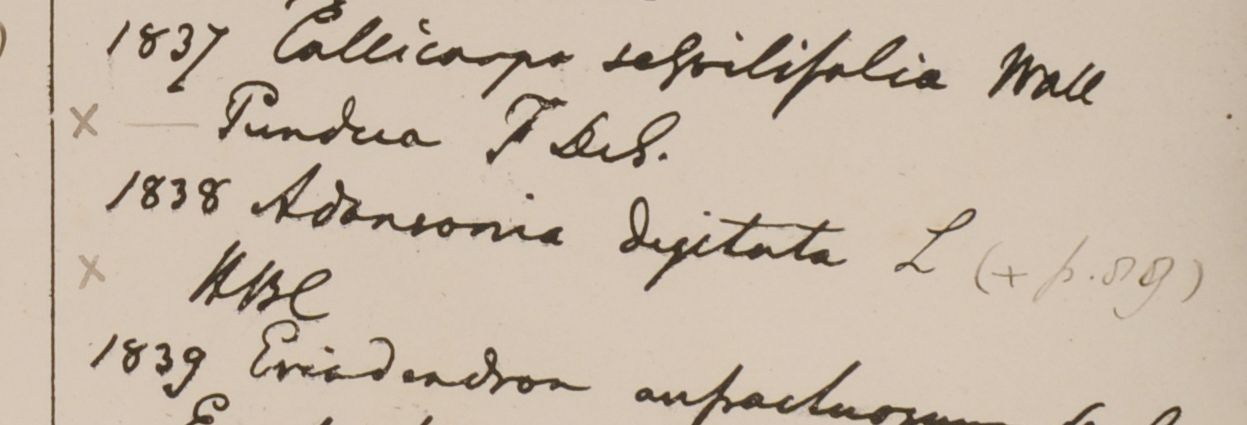 1837 Callicarpa Wall
× — Pundua F De S.
1838 Adansonia digitata L (+ p. 89)
× HBC
1839 Eriodendron anfractuosum